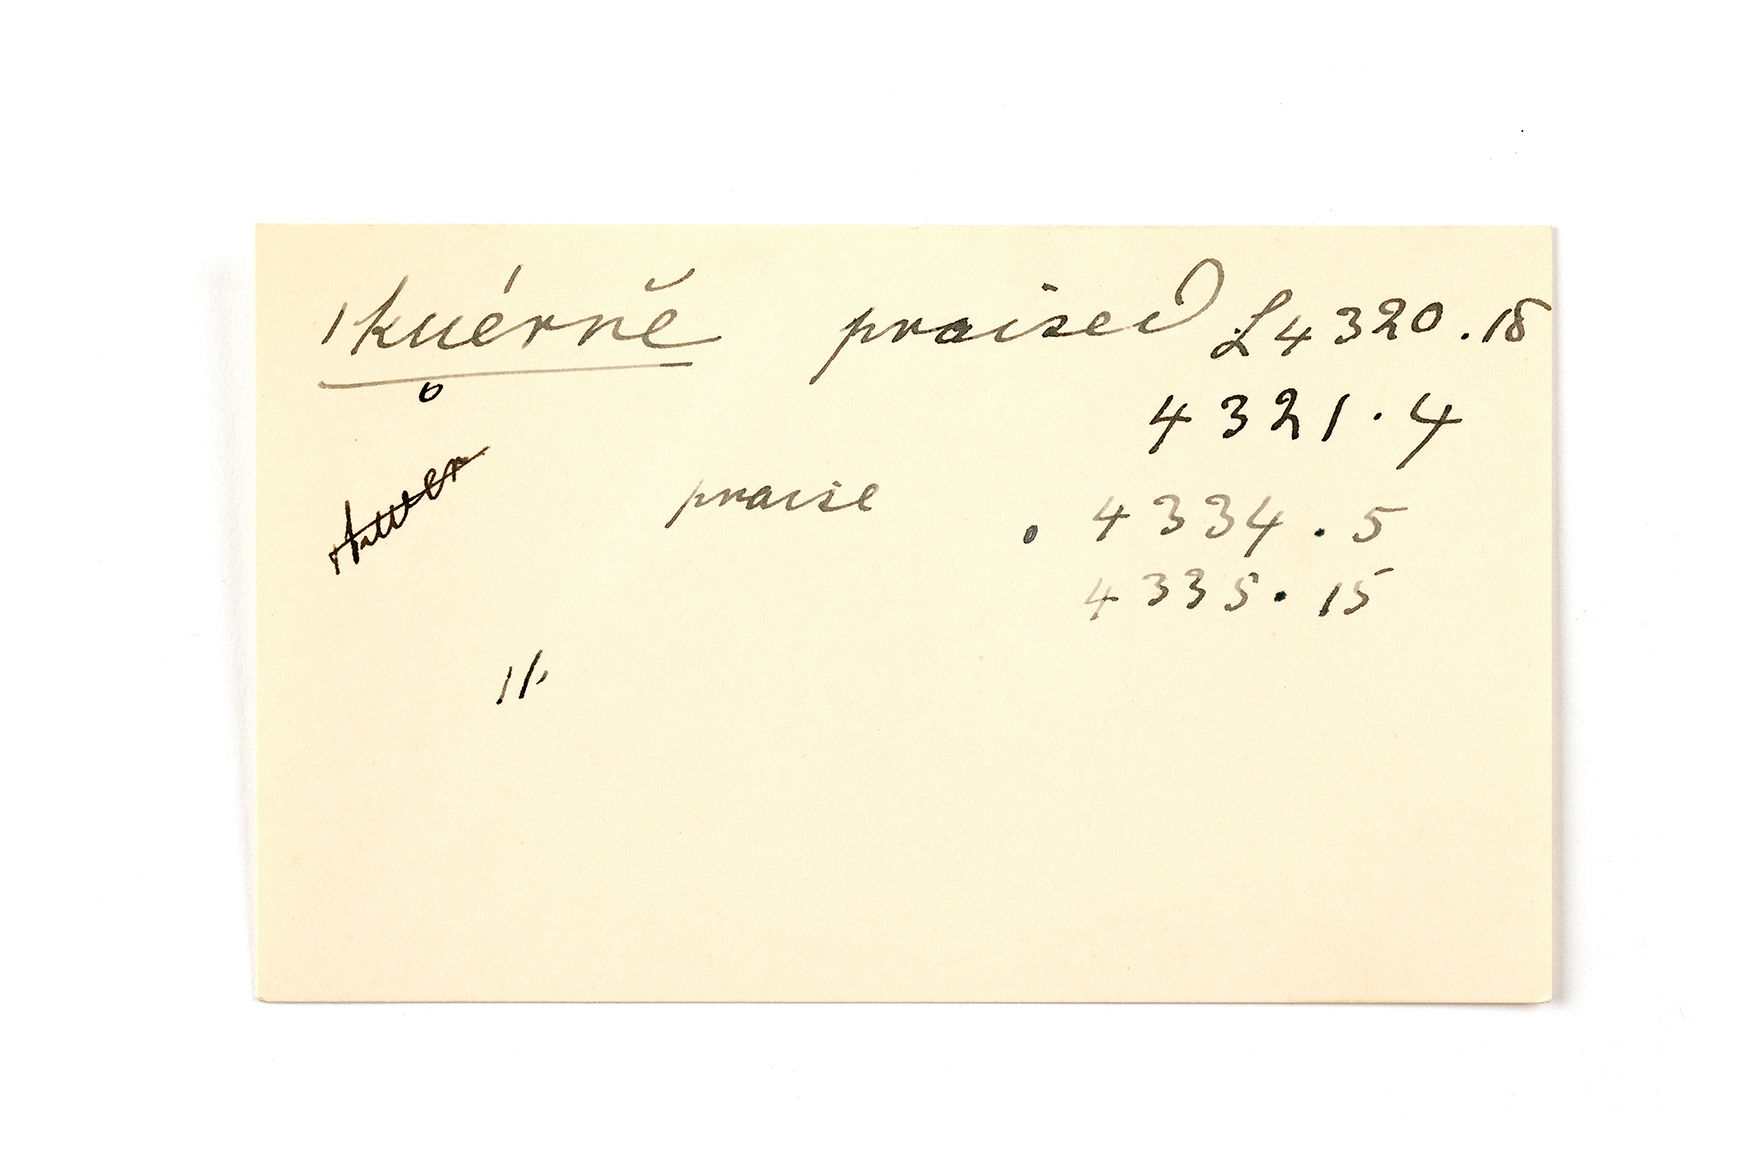 ıkuérně praised L4320.18
4321.4
praise . 4334.5
4335.15